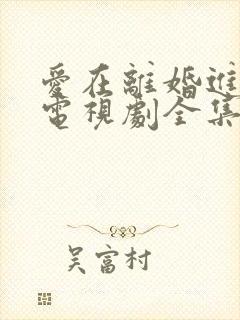 愛在離婚進
電視劇全集
吴富村